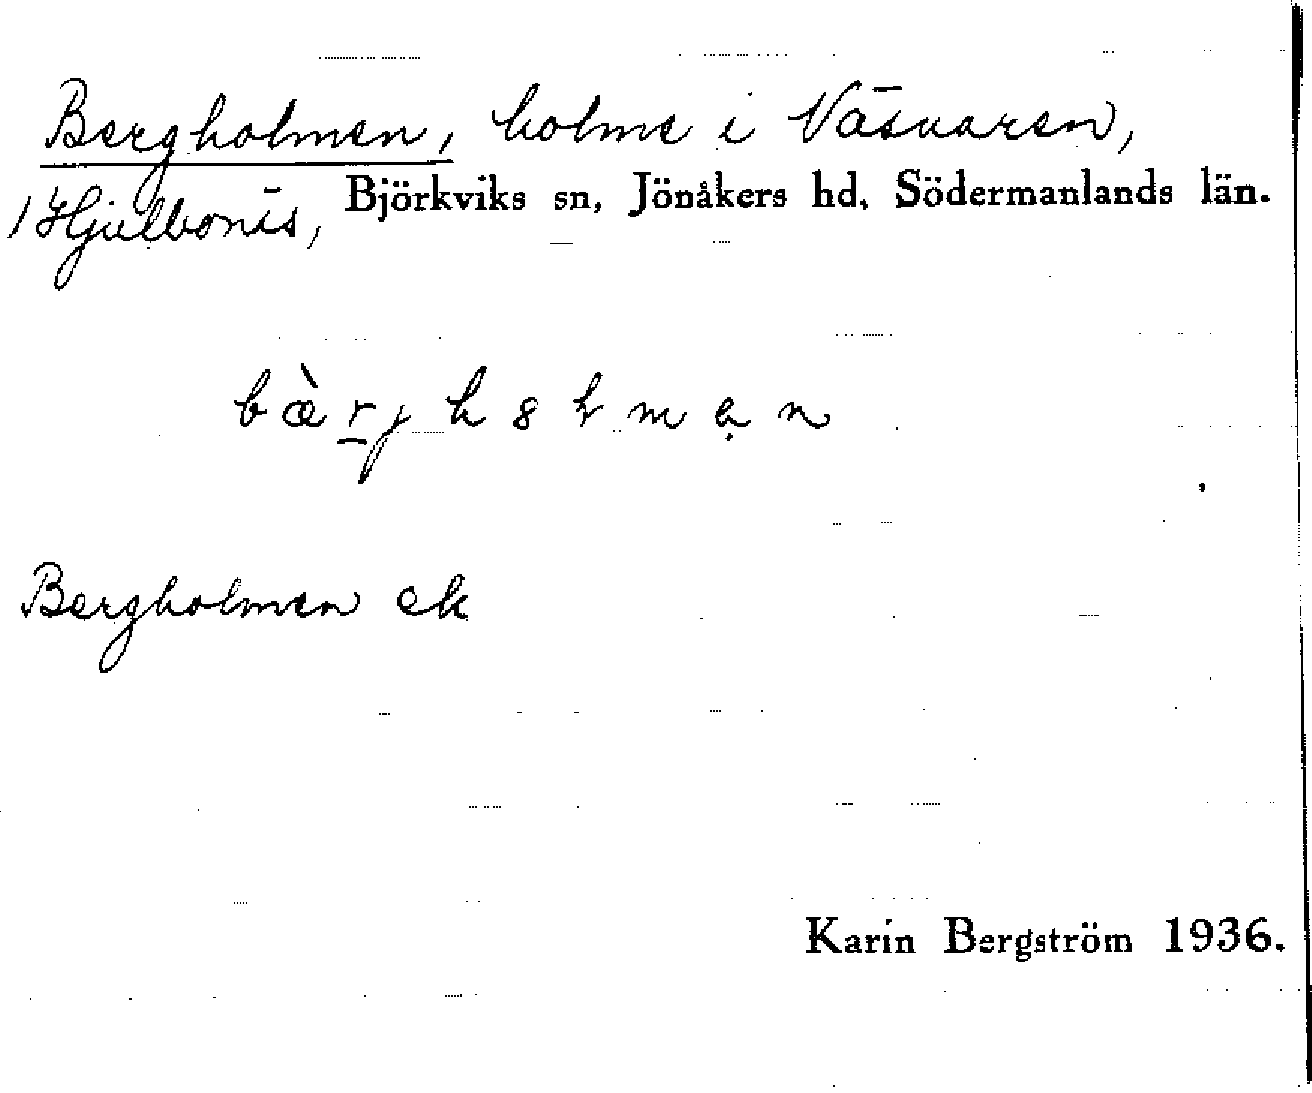 Bergholmen, holme i Väsnaren,
/ Hjulbonäs, Björkviks sn, Jönåkers hd, Södermanlands län.
Bergholmen ek
Karin Bergström 1936.